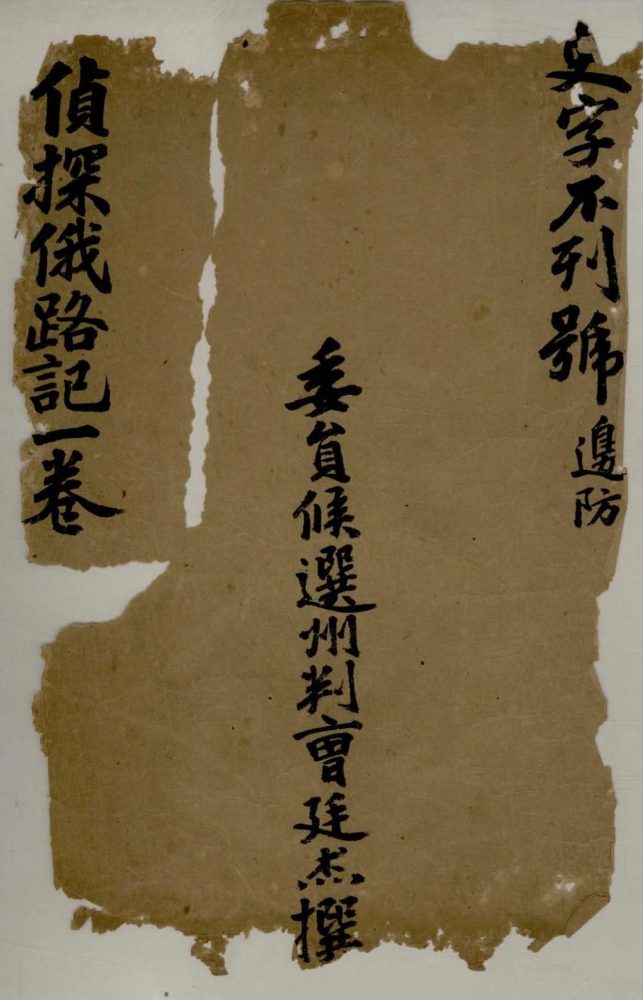 史字不列號 邊防
委員候選州判曹廷杰撰
偵探俄路記一卷